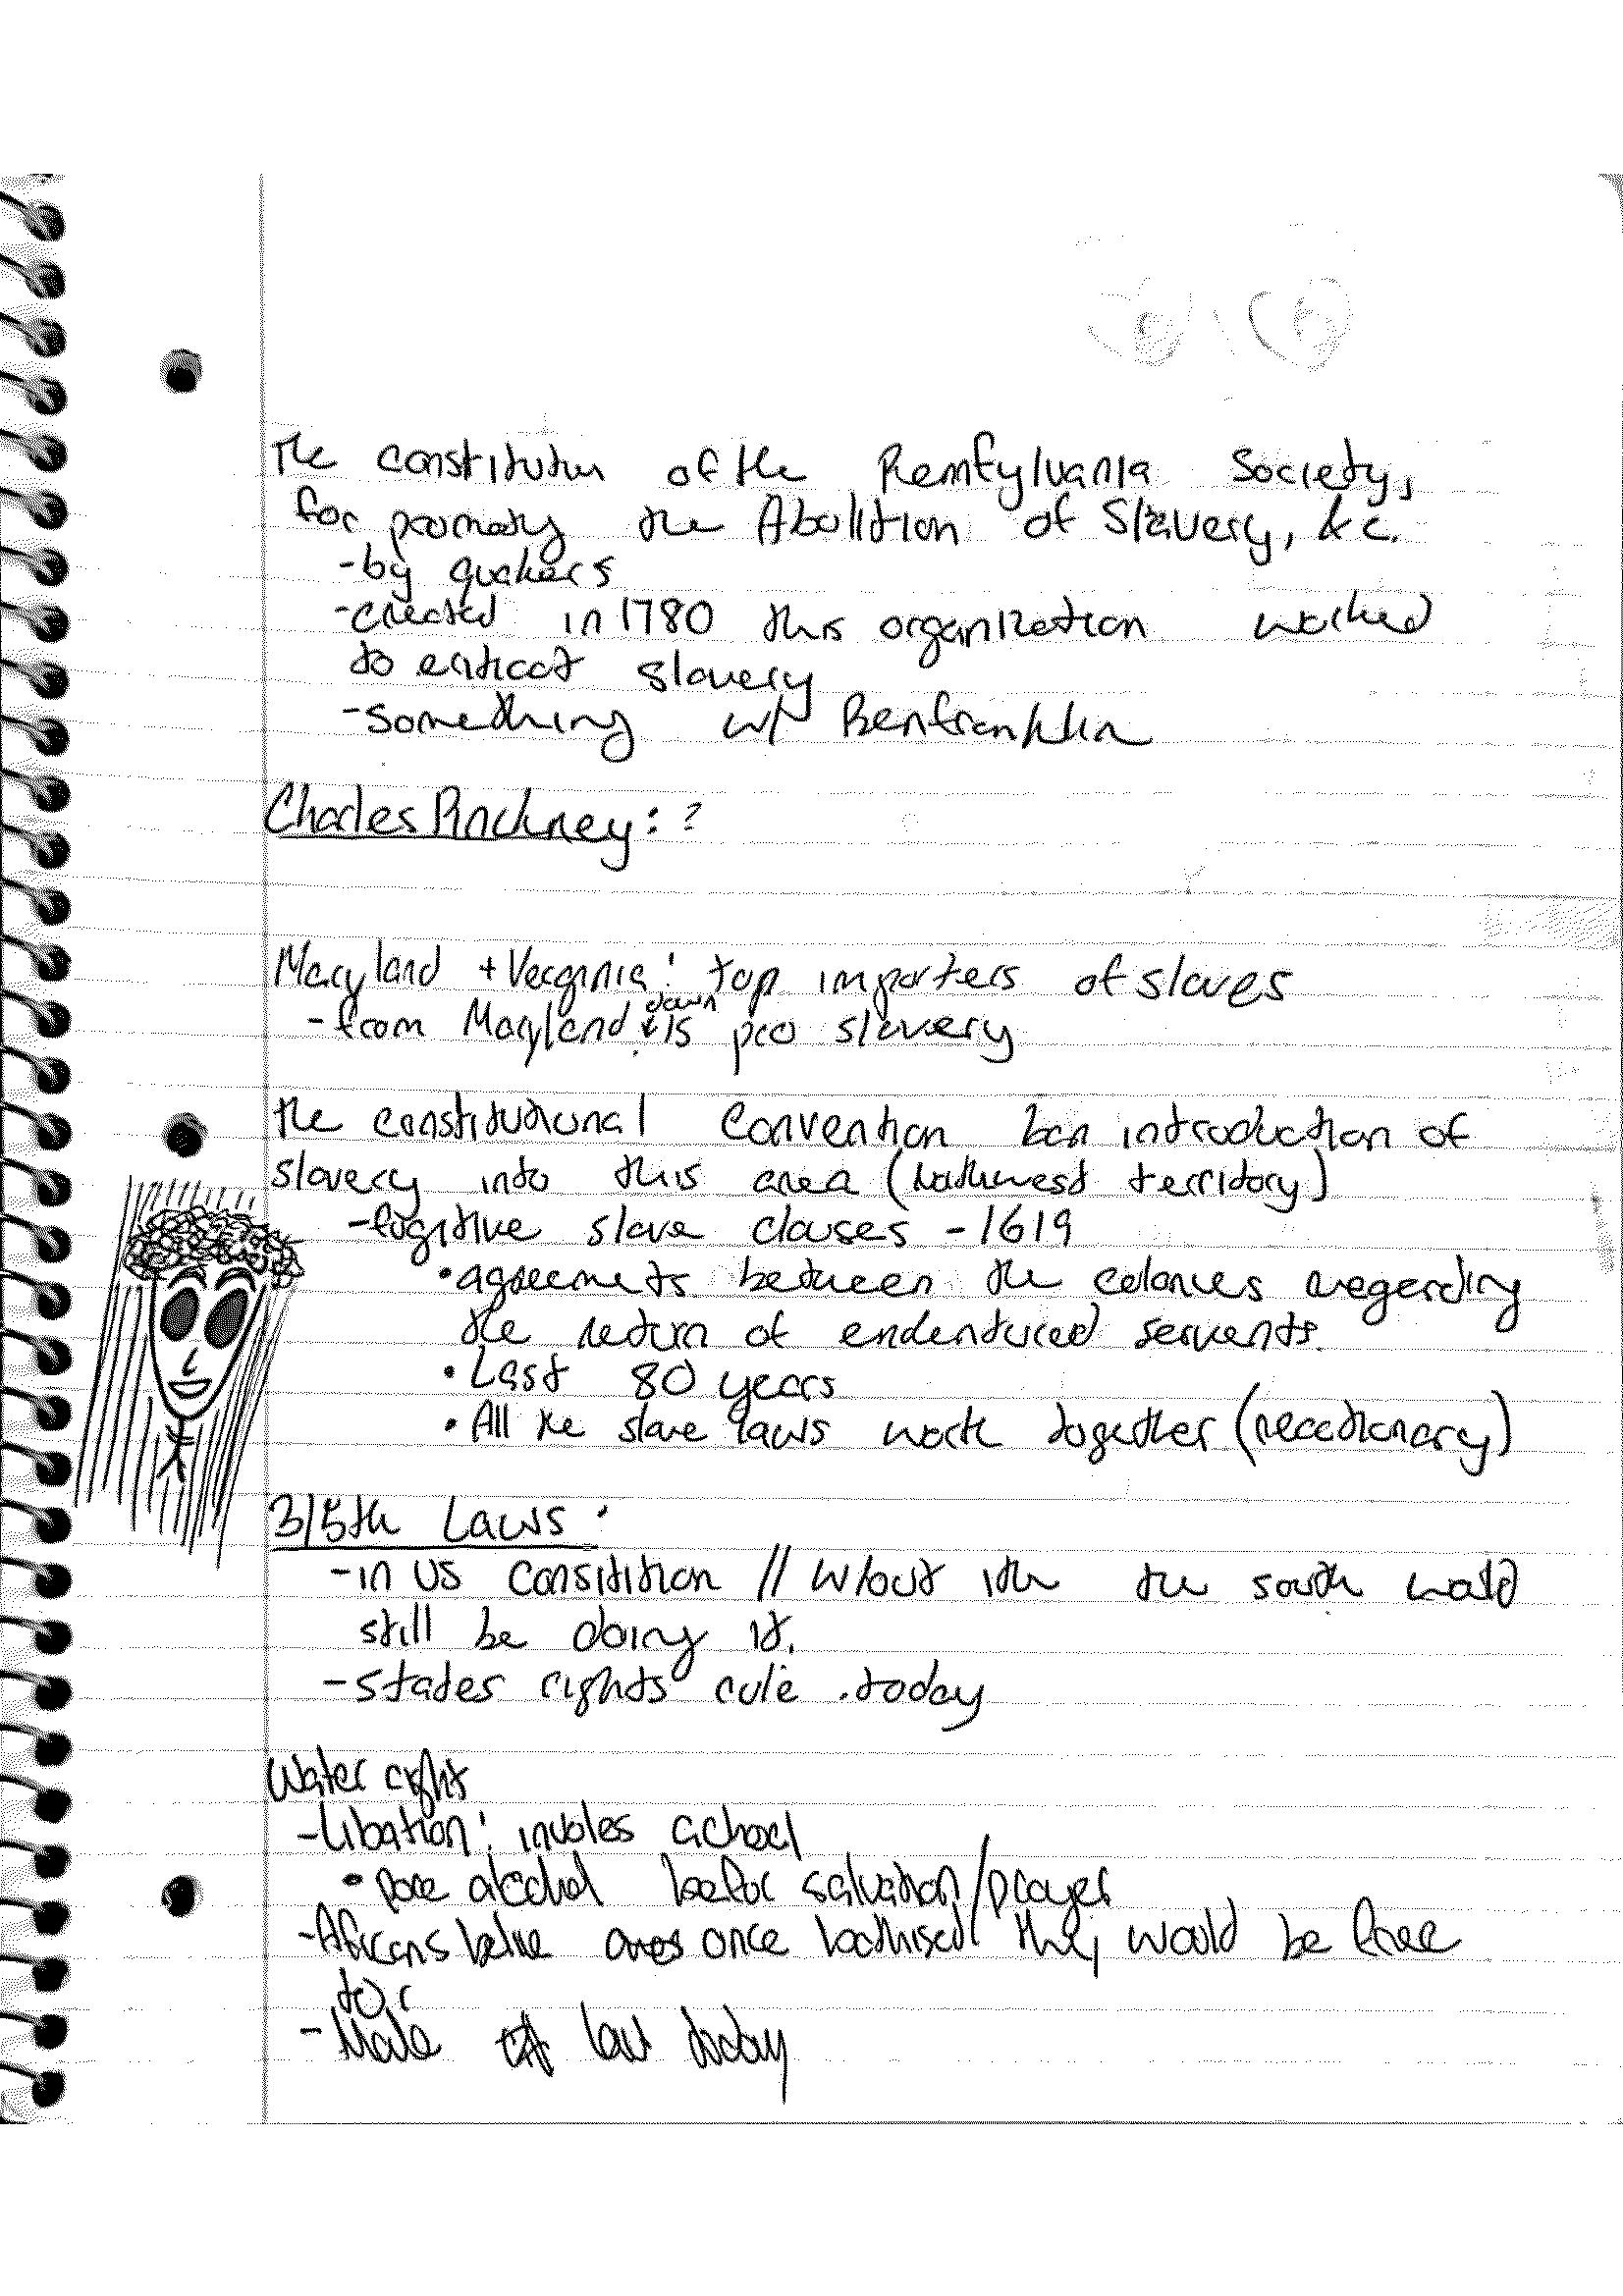 The constitution of the Pennfylvania Society,
for promoting the Abolition of Slavery, &c.
-by quakers
-created in 1780 this organization worked
to entroot slavery
-something w/ Benfranklin
Charles Pinckney: ?
Maryland + Verginia: top importers of slaves
down
-from Maryland ↓ is pro slavery
the constitutional Convention ban introduction of
slavery into this area (Northwest territory)
-fugitive slave clauses -1619
•agreements between the colonies regarding
the return of endentured servents.
•Last 80 years
•All the slave laws work together (reactionary)
3/5th Laws:
-in US Consitition // w/out ith the south would
still be doing it.
-states rights rule .today
Water right
-Libation: involes achoel
•pore alcohol befor salvation/prayer
-Africans belive once bathised they would be free
-Made law today